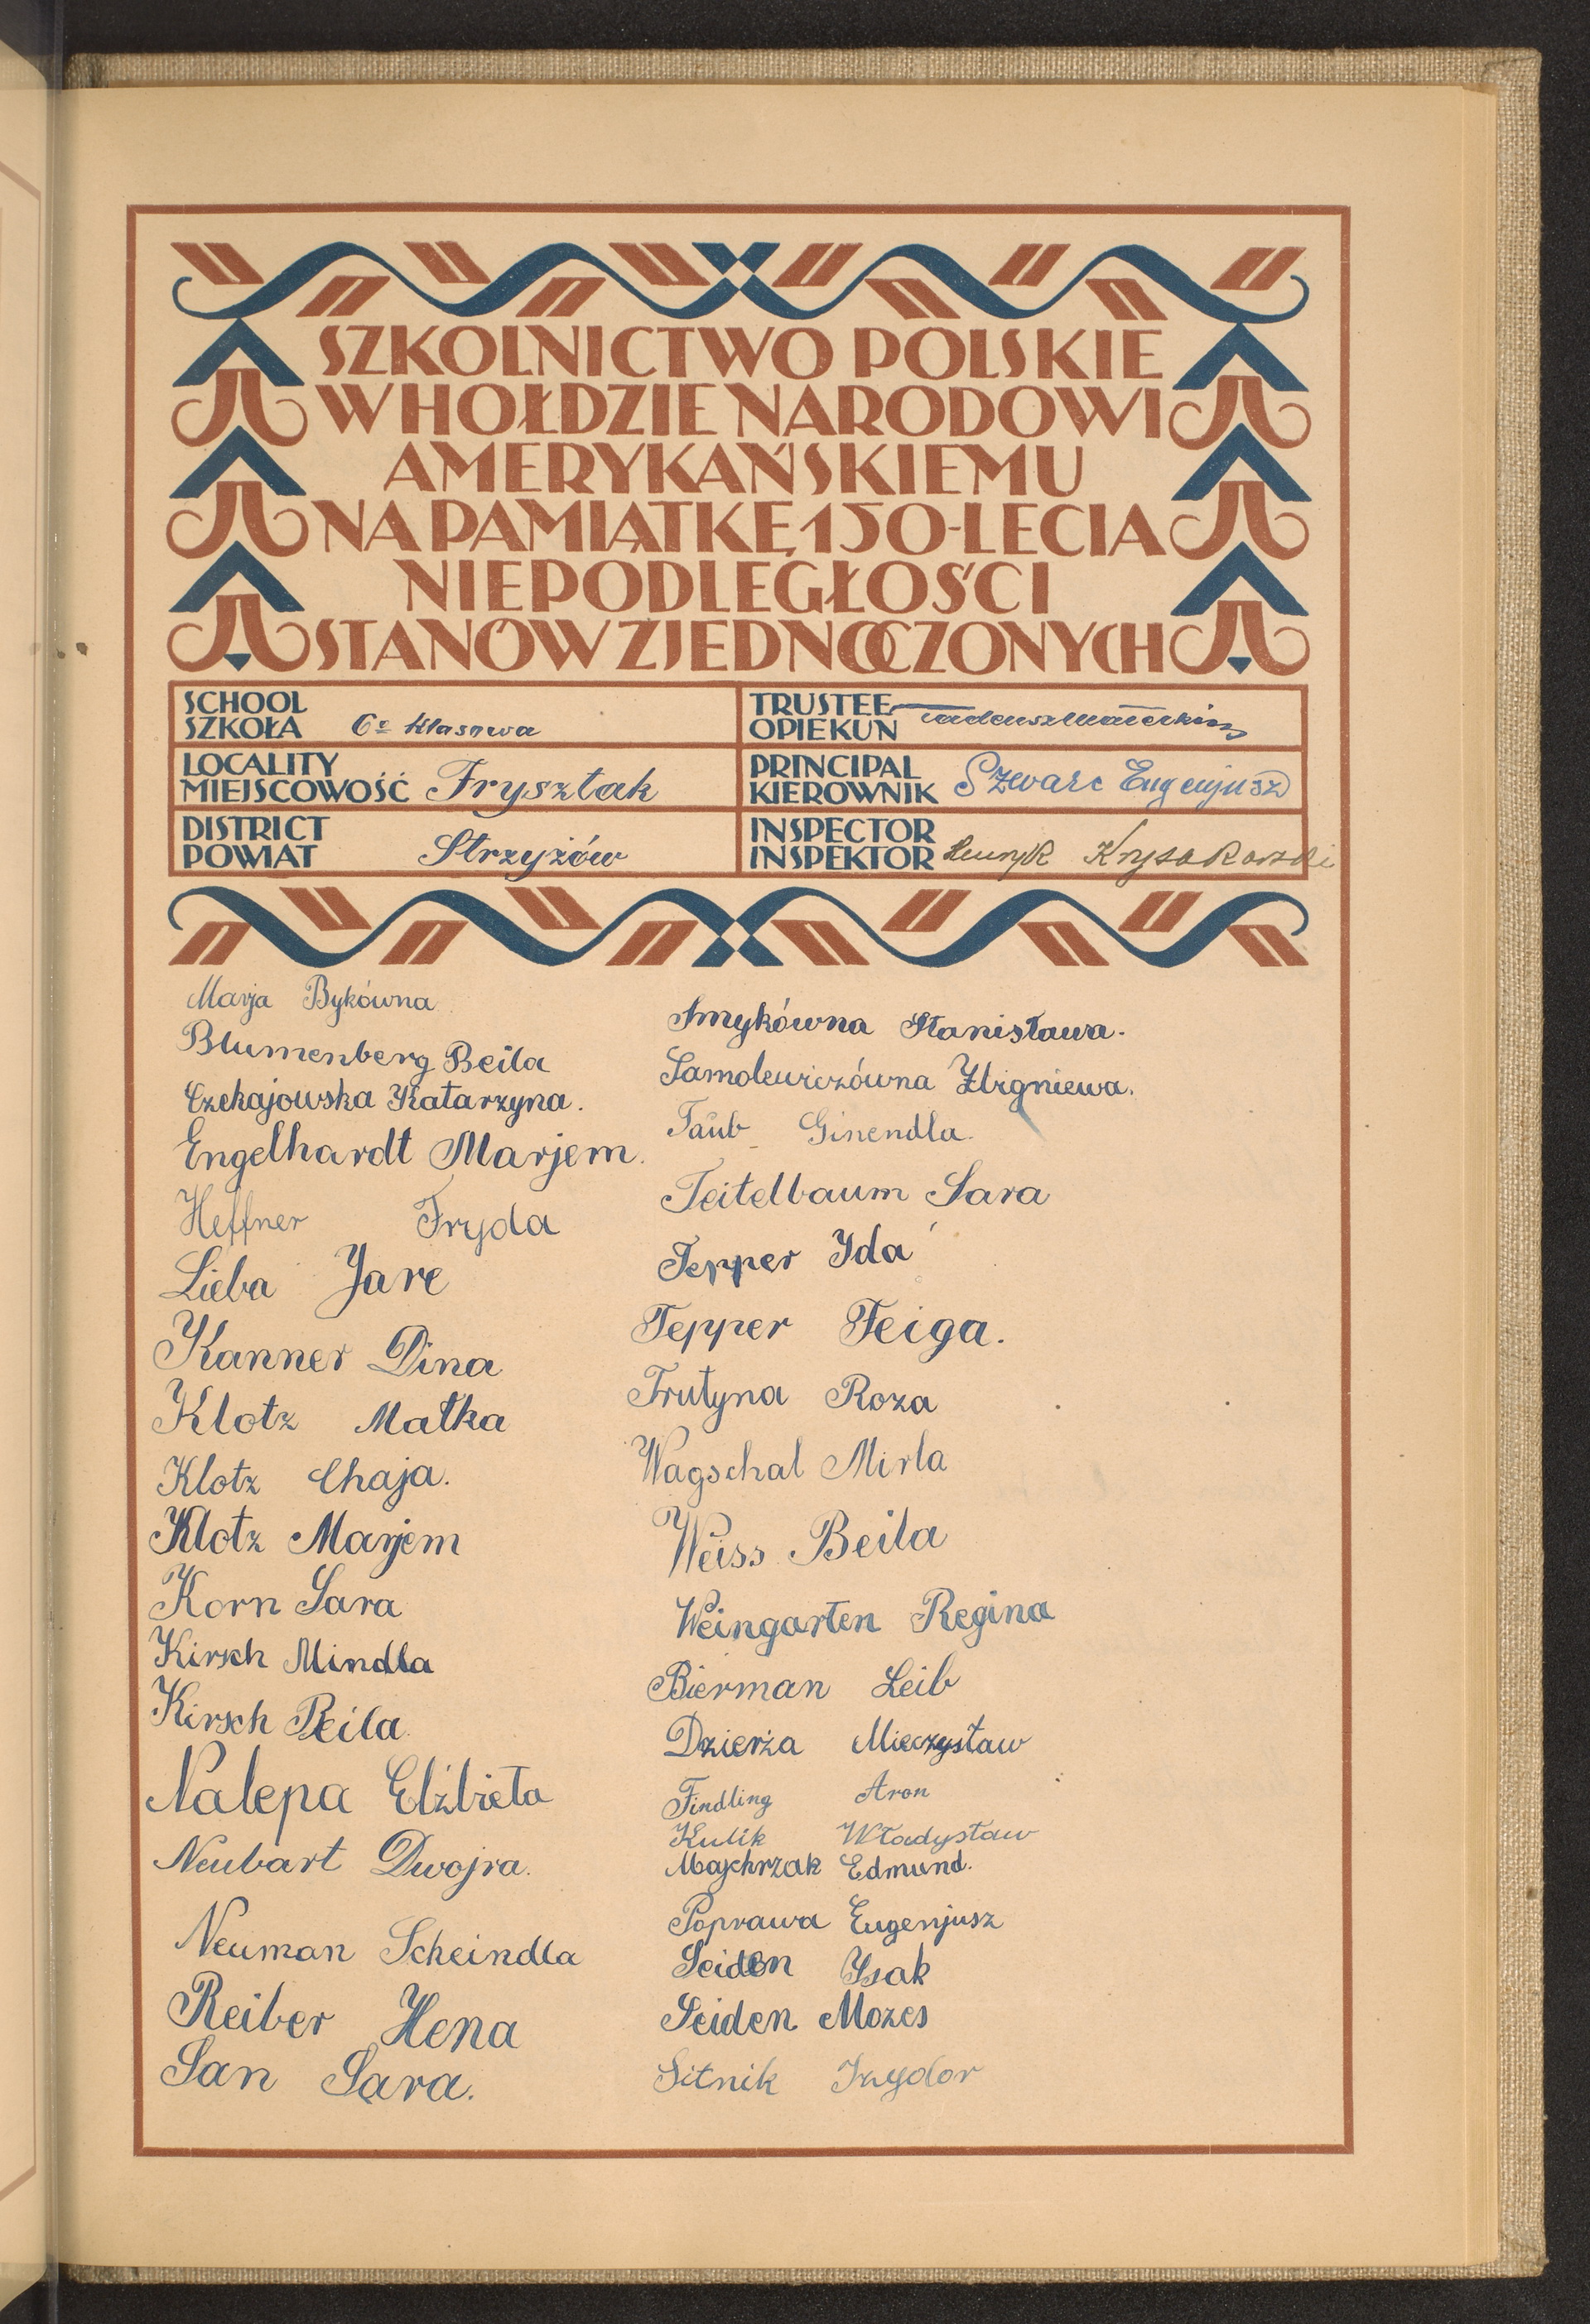 SZKOLNICTWO POLSKIE
W HOŁDZIE NARODOWI
AMERYKAŃSKIEMU
NA PAMIĄTKĘ 150-LECIA
NIEPODLEGŁOŚCI
STANÓW ZJEDNOCZONYCH
SCHOOL
SZKOŁA 6-Klasowa
LOCALITY
MIEJSCOWOŚĆ Frysztak
DISTRICT
POWIAT Strzyżów
TRUSTEE
OPIEKUN Tadeusz
PRINCIPAL
KIEROWNIK Szwarc Eugenjusz
INSPECTOR
INSPEKTOR Henryk
Marja Bykówna
Blumenberg Beila
Czekajowska Katarzyna.
Engelhardt Marjem.
Heffner Fryda
Lieba Jare
Kanner Dina
Klotz Matka
Klotz Chaja.
Klotz Marjem
Korn Sara
Kirsch Mindla
Kirsch Beila
Nalepa Elżbieta
Neubart Dwojra.
Neuman Scheindla
Reiber Hena
San Sara.
Smykówna Stanisława.
Samolewiczówna Zbigniewa.
Taub Ginendla.
Teitelbaum Sara
Tepper Ida
Tepper Feiga.
Trutyna Roza
Wagschal Mirla
Weiss Beila
Weingarten Regina
Bierman Leib
Dzierża Mieczysław
Findling Aron
Kulik Władysław
Majchrzak Edmund.
Poprawa Eugenjusz
Seiden Isak
Seiden Mozes
Sitnik Izydor